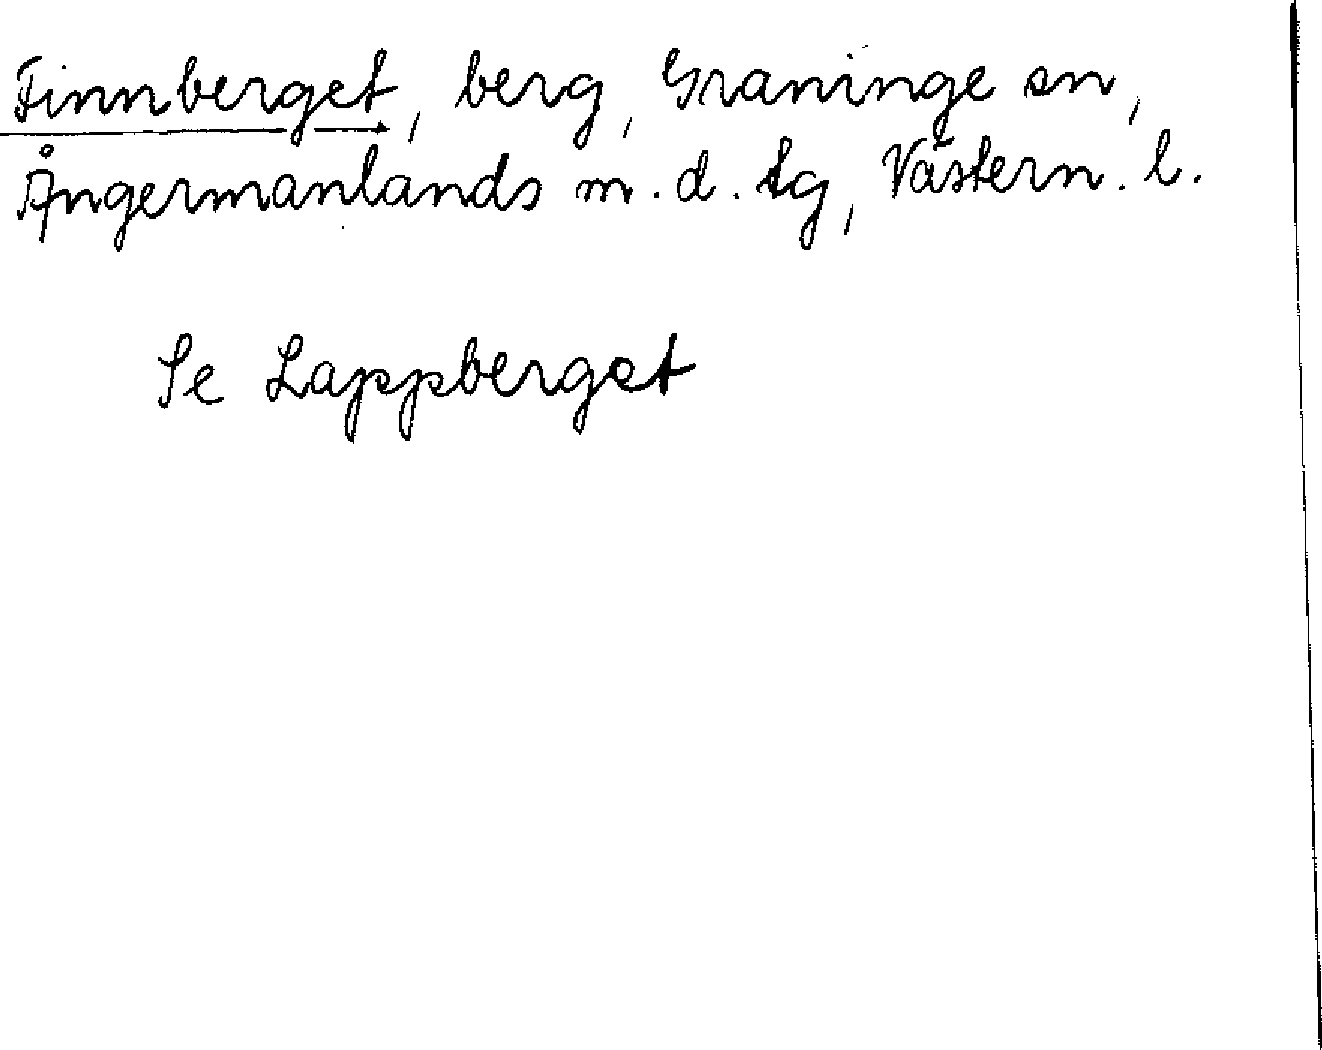 Finnberget, berg, Graninge sn,
Ångermanlands m.d. tg, Västern. l.
Se Lappberget